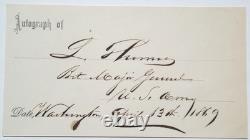 Autograph of
L. Thomas
Bvt Major General
U. S. Army
Date, Washington April 13th 1869